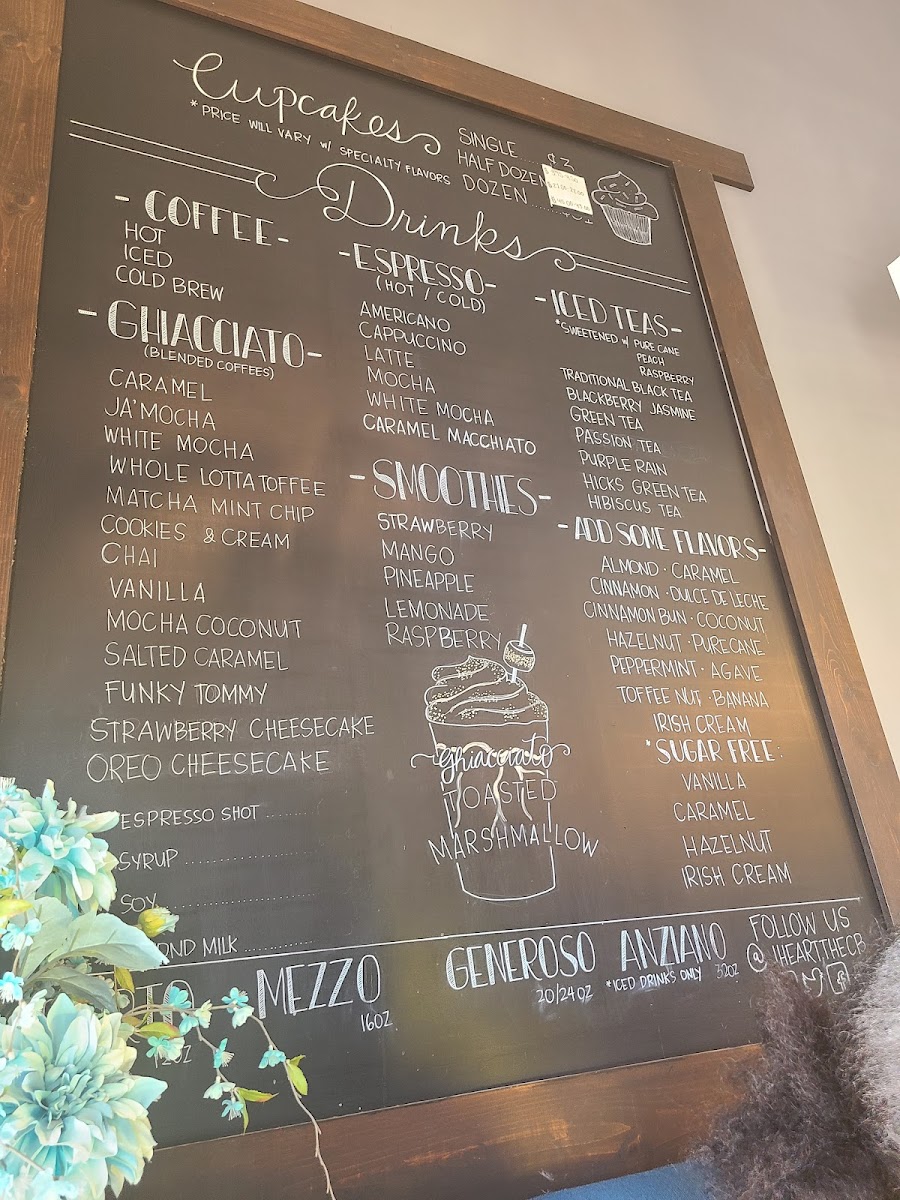 Cupcakes
* PRICE WILL VARY w/ SPECIALTY FLAVORS
SINGLE
HALF DOZEN
DOZEN
Drinks
- COFFEE -
HOT
ICED
COLD BREW
- GHIACCIATO -
(BLENDED COFFEES)
CARAMEL
JA'MOCHA
WHITE MOCHA
WHOLE LOTTA TOFFEE
MATCHA MINT CHIP
COOKIES & CREAM
CHAI
VANILLA
MOCHA COCONUT
SALTED CARAMEL
FUNKY TOMMY
STRAWBERRY CHEESECAKE
OREO CHEESECAKE
ESPRESSO SHOT
SYRUP
SOY
MILK
- ESPRESSO -
(HOT / COLD)
AMERICANO
CAPPUCCINO
LATTE
MOCHA
WHITE MOCHA
CARAMEL MACCHIATO
- SMOOTHIES -
STRAWBERRY
MANGO
PINEAPPLE
LEMONADE
RASPBERRY
ghiacciato
TOASTED
MARSHMALLOW
- ICED TEAS -
*SWEETENED w/ PURE CANE
PEACH
RASPBERRY
TRADITIONAL BLACK TEA
BLACKBERRY JASMINE
GREEN TEA
PASSION TEA
PURPLE RAIN
HICKS GREEN TEA
HIBISCUS TEA
- ADD SOME FLAVORS -
ALMOND · CARAMEL
CINNAMON · DULCE DE LECHE
CINNAMON BUN · COCONUT
HAZELNUT · PURE CANE
PEPPERMINT · AGAVE
TOFFEE NUT · BANANA
IRISH CREAM
*SUGAR FREE:
VANILLA
CARAMEL
HAZELNUT
IRISH CREAM
12OZ
MEZZO
16OZ
GENEROSO
20/24OZ
ANZIANO
*ICED DRINKS ONLY 32OZ
FOLLOW US
@IHEARTTHECB